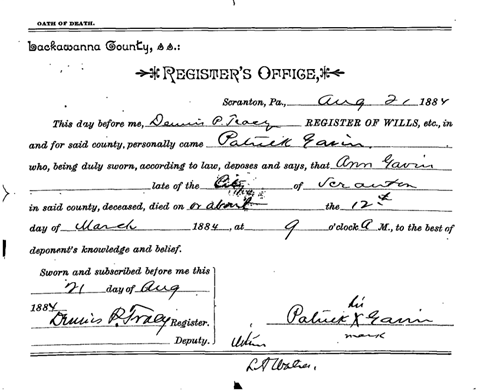 OATH OF DEATH.
Lackawanna County, ss.:
REGISTER'S OFFICE,
Scranton, Pa., Aug 21 1884
This day before me, Dennis P. Tracy REGISTER OF WILLS, etc., in
and for said county, personally came Patrick Gavin
who, being duly sworn, according to law, deposes and says, that Ann Gavin
late of the City of Scranton
in said county, deceased, died on or about the 12th
day of March 1884, at 9 o'clock A M., to the best of
deponent's knowledge and belief.
Sworn and subscribed before me this
21 day of Aug
1884
Dennis P. Tracy Register.
Deputy.
his
Patrick X Gavin
mark